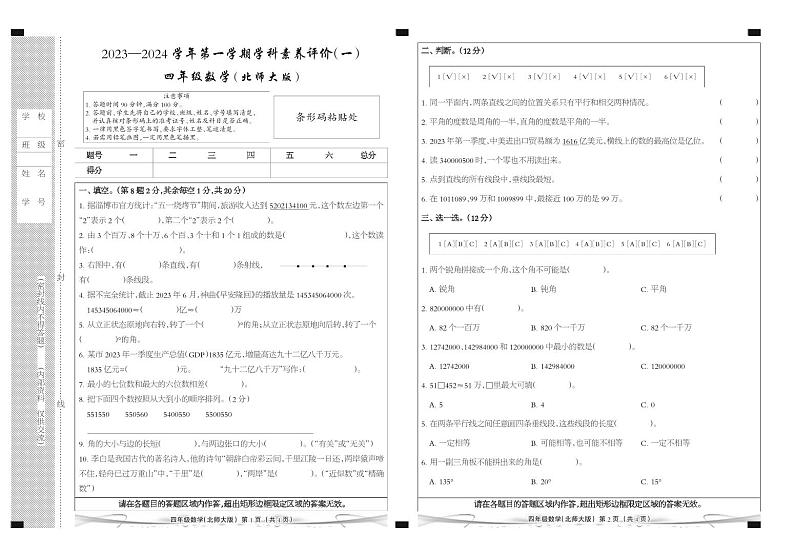 学 校
班 级
姓 名
学 号
密
封
线
(密封线内不得答题)
(内部资料 仅供交流)
2023—2024 学年第一学期学科素养评价(一)
四年级数学(北师大版)
注意事项
1. 答题时间 90 分钟,满分 100 分。
2. 答题前,学生先将自己的学校、班级、姓名、学号填写清楚,
并认真核对条形码上的准考证号、姓名及科目是否正确。
3. 一律用黑色签字笔书写,要求字体工整,笔迹清楚。
4. 画图用铅笔画图,一定用黑色笔描黑。
条形码粘贴处
题号 一 二 三 四 五 六 总分
得分
一、填空。(第 8 题 2 分,其余每空 1 分,共 20 分)
1. 据淄博市官方统计:“五一烧烤节”期间,旅游收入达到 5202134100 元,这个数左边第一个
“2”表示 2 个( ),第二个“2”表示 2 个( )。
2. 由 3 个百万、8 个十万、6 个百、3 个十和 1 个 1 组成的数是( ),这个数读
作:( )。
3. 右图中,有( )条直线,有( )条射线,
有( )条线段。
4. 据不完全统计,截止 2023 年 6 月,神曲《早安隆回》的播放量是 145345064000 次。
145345064000=( )亿≈( )万
5. 从立正状态原地向右转,转了一个( )°的角;从立正状态原地向后转,转了一个
( )°的角。
6. 某市 2023 年一季度生产总值(GDP)1835 亿元,增量高达九十二亿八千万元。
1835 亿元=( )元。 “九十二亿八千万”写作:( )。
7. 最小的七位数和最大的六位数相差( )。
8. 把下面四个数按照从大到小的顺序排列。(2 分)
551550 550560 5400550 5500550
9. 角的大小与边的长短( ),与两边张口的大小( )。(“有关”或“无关”)
10. 李白是我国古代的著名诗人,他的诗句“朝辞白帝彩云间,千里江陵一日还,两岸猿声啼
不住,轻舟已过万重山”中,“千里”是( ),“两岸”是( )。(“近似数”或“精确
数”)
请在各题目的答题区域内作答,超出矩形边框限定区域的答案无效。
四年级数学(北师大版) 第 1 页 (共 4 页)
二、判断。(12 分)
1 [√] [×] 2 [√] [×] 3 [√] [×] 4 [√] [×] 5 [√] [×] 6 [√] [×]
1. 同一平面内,两条直线之间的位置关系只有平行和相交两种情况。 ( )
2. 平角的度数是周角的一半,直角的度数是平角的一半。 ( )
3. 2023 年第一季度,中美进出口贸易额为 1616 亿美元,横线上的数的最高位是亿位。 ( )
4. 读 340000500 时,一个零也不用读出来。 ( )
5. 点到直线的所有线段中,垂线段最短。 ( )
6. 在 1011089、99 万和 1009899 中,最接近 100 万的是 99 万。 ( )
三、选一选。(12 分)
1 [A][B][C] 2 [A][B][C] 3 [A][B][C] 4 [A][B][C] 5 [A][B][C] 6 [A][B][C]
1. 两个锐角拼接成一个角,这个角不可能是( )。
A. 锐角 B. 钝角 C. 平角
2. 820000000 中有( )。
A. 82 个一百万 B. 820 个一千万 C. 82 个一千万
3. 12742000、142984000 和 120000000 中最小的数是( )。
A. 12742000 B. 142984000 C. 120000000
4. 51□452≈51 万,□里最大可填( )。
A. 5 B. 4 C. 0
5. 在两条平行线之间任意画四条垂线段,这些线段的长度( )。
A. 一定相等 B. 可能相等,也可能不相等 C. 一定不相等
6. 用一副三角板不能拼出来的角是( )。
A. 135° B. 20° C. 15°
请在各题目的答题区域内作答,超出矩形边框限定区域的答案无效。
四年级数学(北师大版) 第 2 页 (共 4 页)